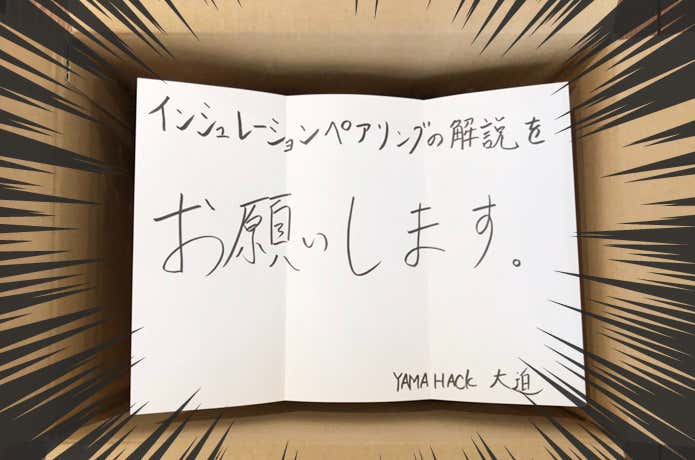 インシュレーションペアリングの解説を
お願いします。
YAMA HACK 大迫